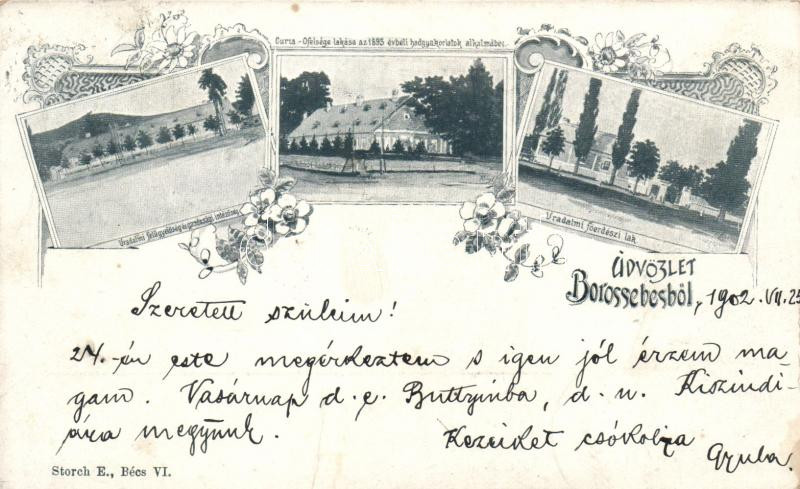 Curia - Őfelsége lakása az 1895 évbeli hadgyakorlatok alkalmából.
Uradalmi felügyelőség és gazdasági intézőség
Uradalmi főerdészi lak.
ÜDVÖZLET
Borossebesből, 1902. VII. 25
Szeretett szüleim!
24.-én este megérkeztem s igen jól érzem ma-
gam. Vasárnap d. e. Buttyinba, d. u. Kiszindi-
ára megyünk.
Kezeiket csókolja
Gyula.
Storch E., Bécs VI.